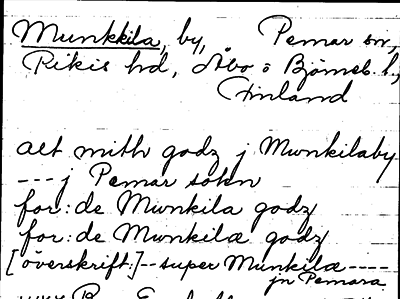 Munkkila, by, Pemar sn,
Pikis hd, Åbo o Björneb. l,
Finland
alt mith godz j Munkilaby
--- j Pemar sokn
for: de Munkila godz
for: de Munkilæ godz
[överskrift:]--super Munkilæ----
jn Pemara